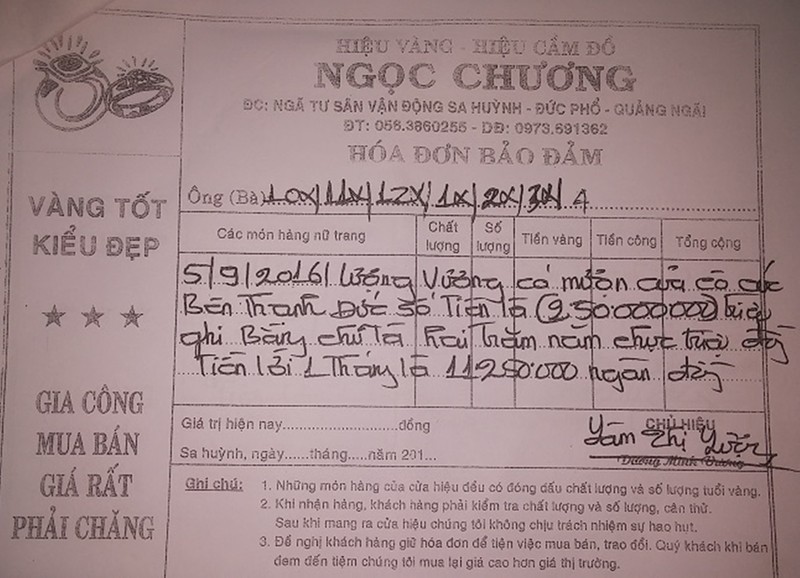 HIỆU VÀNG - HIỆU CẦM ĐỒ
NGỌC CHƯƠNG
ĐC: NGÃ TƯ SÂN VẬN ĐỘNG SA HUỲNH - ĐỨC PHỔ - QUẢNG NGÃI
ĐT: 056.3860255 - DĐ: 0973.691362
HÓA ĐƠN BẢO ĐẢM
VÀNG TỐT
KIỂU ĐẸP
★ ★ ★
GIA CÔNG
MUA BÁN
GIÁ RẤT
PHẢI CHĂNG
Ông (Bà) 10x/11x/12x/1x/2x/3x/.4
Các món hàng nữ trang Chất lượng Số lượng Tiền vàng Tiền công Tổng cộng
5/9/2016/ Lương Vương có mườn của cô
Bên Thanh Đức số Tiền là (250.000000) triệu
ghi Bằng chữ là hai Trăm năm chục triệu đồng
Tiền lời 1 Tháng là 11250.000 ngàn đồng
Giá trị hiện nay..............................đồng
CHỦ HIỆU
Sa huỳnh, ngày......tháng.....năm 201...
Dương Minh Vương
Ghi chú: 1. Những món hàng của cửa hiệu đều có đóng dấu chất lượng và số lượng tuổi vàng.
2. Khi nhận hàng, khách hàng phải kiểm tra chất lượng và số lượng, cân thử.
Sau khi mang ra cửa hiệu chúng tôi không chịu trách nhiệm sự hao hụt.
3. Đề nghị khách hàng giữ hóa đơn để tiện việc mua bán, trao đổi. Quý khách khi bán
đem đến tiệm chúng tôi mua lại giá cao hơn giá thị trường.